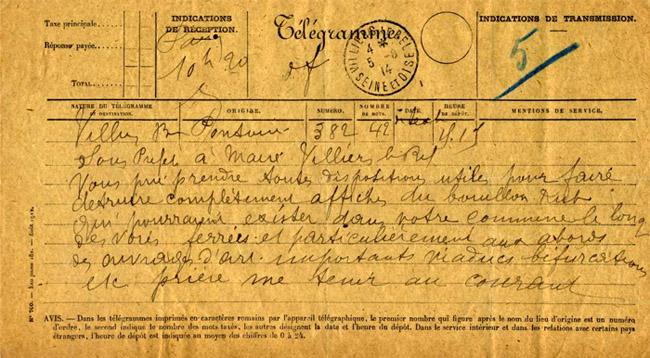 Taxe principale
Réponse payée
TOTAL
INDICATIONS DE RÉCEPTION.
Télégramme
INDICATIONS DE TRANSMISSION.
10 h 20
VILLIERS-LE-BEL
SEINE ET OISE
4
5 -8
14
5
NATURE DU TÉLÉGRAMME ET DESTINATION.
ORIGINE.
NUMÉRO.
NOMBRE DE MOTS.
DATE.
HEURE DE DÉPÔT.
MENTIONS DE SERVICE.
Villiers Pontoise 382 42
Sous Prefet à Maire Villiers le Bel
Vous prie prendre toutes disposition utiles pour faire
detruire complètement affiches du bouillon Kub
qui pourraient exister dans votre commune le long
des voies ferrées et particulièrement aux abords
des ouvrages d'art importants viaducs bifurcations
etc prière me tenir au courant
N° 700.
AVIS. — Dans les télégrammes imprimés en caractères romains par l'appareil télégraphique, le premier nombre qui figure après le nom du lieu d'origine est un numéro
d'ordre, le second indique le nombre des mots taxés, les autres désignent la date et l'heure du dépôt. Dans le service intérieur et dans les relations avec certains pays
étrangers, l'heure de dépôt est indiquée au moyen des chiffres de 0 à 24.